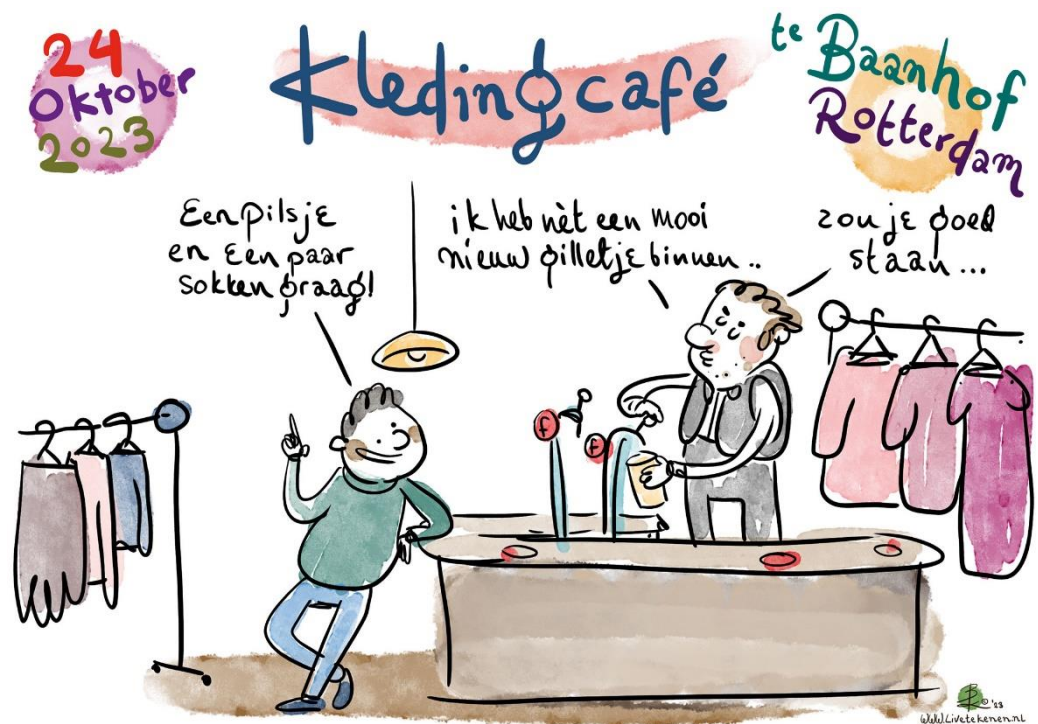 24
Oktober
2023
Kledingcafé
te Baanhof
Rotterdam
Een pilsje
en Een paar
Sokken graag!
ik heb nèt een mooi
nieuw gilletje binnen..
zou je goed
staan...
f
f
© '23
www.livetekenen.nl